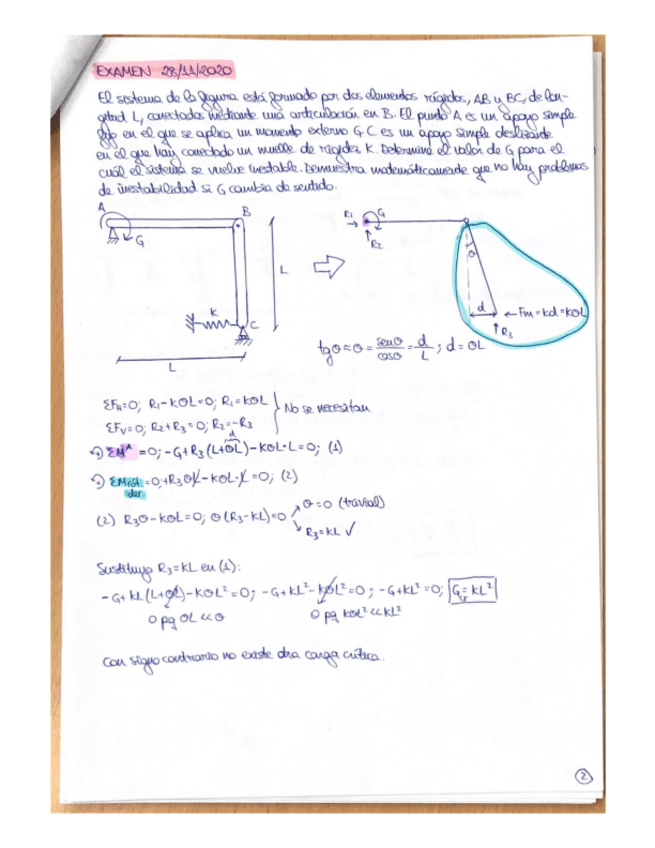 EXAMEN 28/11/2020
El sistema de la figura está formado por dos elementos rígidos, AB y BC, de lon-
gitud L, conectados mediante una articulación en B. El punto A es un apoyo simple
fijo en el que se aplica un momento externo G. C es un apoyo simple deslizante
en el que hay conectado un muelle de rigidez K. Determine el valor de G para el
cuál el sistema se vuelve inestable. Demuestra matemáticamente que no hay problemas
de inestabilidad si G cambia de sentido.
A
B
G
L
K
C
L
R1
G
R2
θ
d
← Fm = kd = kθL
↑R3
tgθ ≈ θ = senθ/cosθ = d/L ; d = θL
ΣFH=0; R1-KθL=0; R1=KθL
ΣFV=0; R2+R3=0; R2=-R3
No se necesitan
ΣM^A =0; -G+R3(L+θL)-KθL·L=0; (1)
d
ΣMrót. der. =0; +R3θL-KθL·L=0; (2)
(2) R3θ-KθL=0; θ(R3-KL)=0
θ=0 (trivial)
R3=KL ✓
Sustituyo R3=KL en (1):
-G+KL(L+θL)-KθL²=0; -G+KL²-KθL²=0; -G+KL²=0; G=KL²
0 pq θL<<0
0 pq kθL²<<KL²
Con signo contrario no existe otra carga crítica.
2